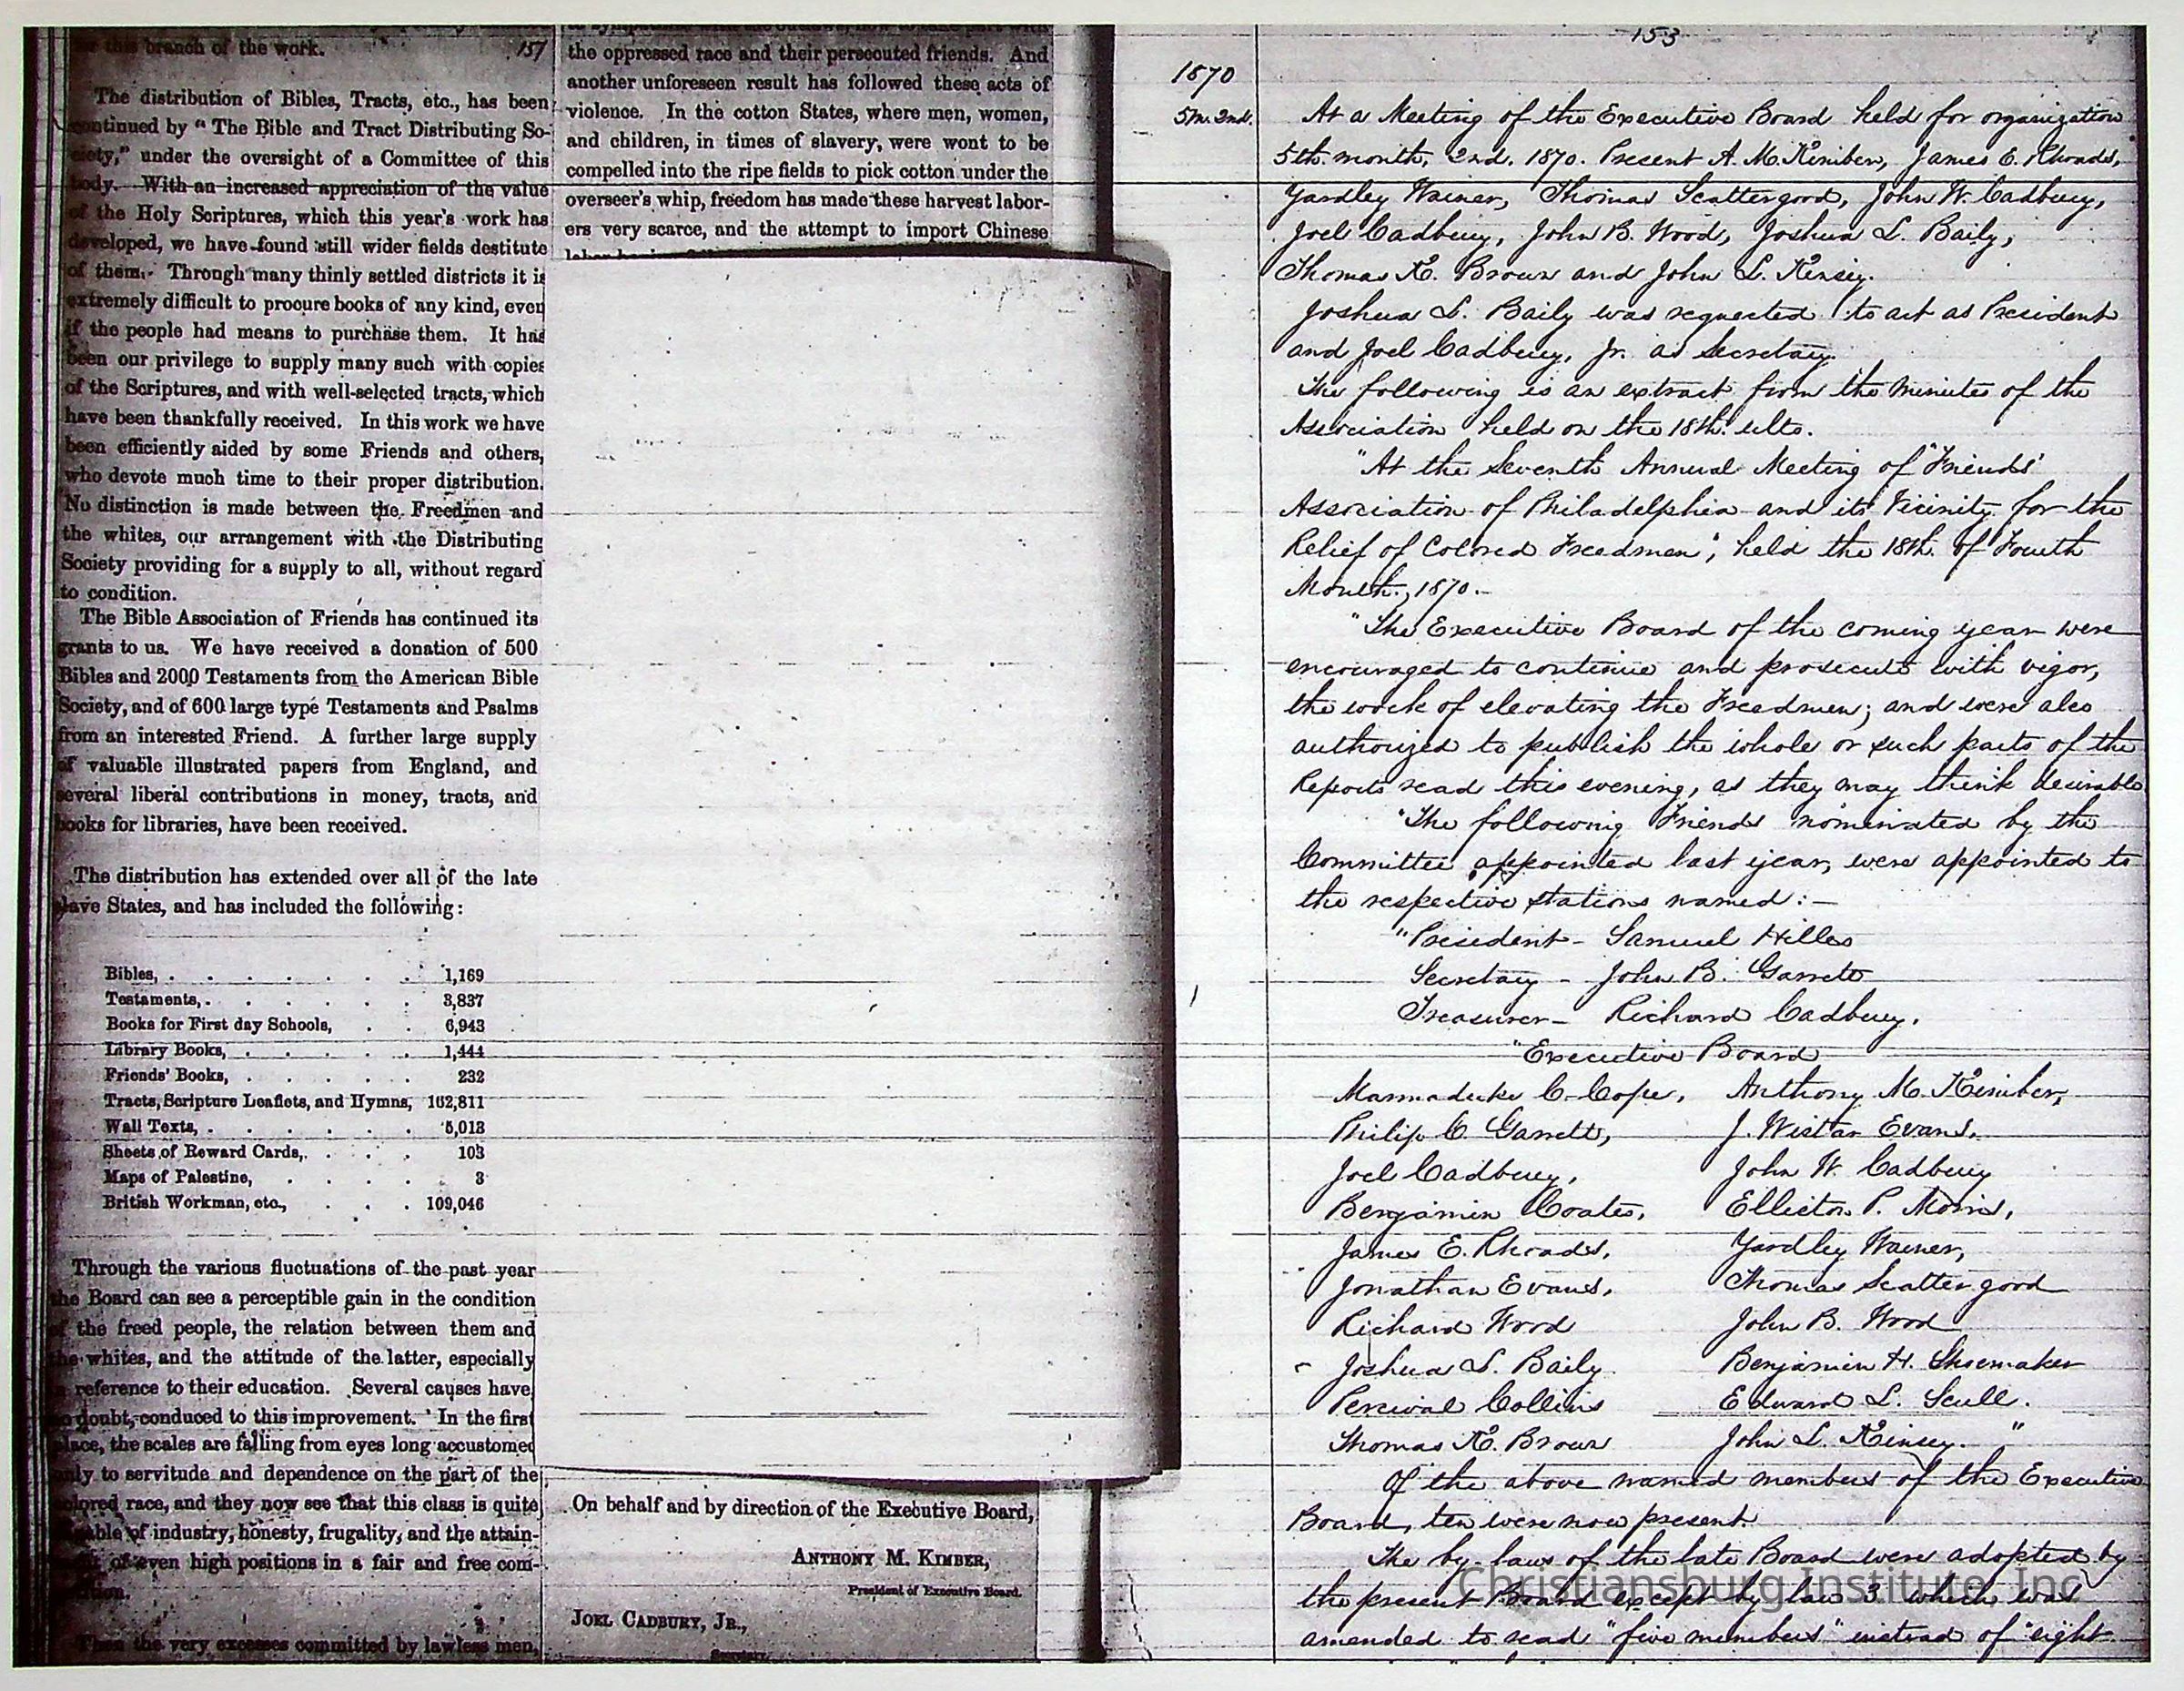 for this branch of the work. 151
The distribution of Bibles, Tracts, etc., has been
continued by “ The Bible and Tract Distributing So-
ciety,” under the oversight of a Committee of this
body. With an increased appreciation of the value
of the Holy Scriptures, which this year's work has
developed, we have found still wider fields destitute
of them. Through many thinly settled districts it is
extremely difficult to procure books of any kind, even
if the people had means to purchase them. It has
been our privilege to supply many such with copies
of the Scriptures, and with well-selected tracts, which
have been thankfully received. In this work we have
been efficiently aided by some Friends and others,
who devote much time to their proper distribution.
No distinction is made between the Freedmen and
the whites, our arrangement with the Distributing
Society providing for a supply to all, without regard
to condition.
The Bible Association of Friends has continued its
grants to us. We have received a donation of 500
Bibles and 2000 Testaments from the American Bible
Society, and of 600 large type Testaments and Psalms
from an interested Friend. A further large supply
of valuable illustrated papers from England, and
several liberal contributions in money, tracts, and
books for libraries, have been received.
The distribution has extended over all of the late
slave States, and has included the following:
Bibles, . . . . . . . 1,169
Testaments, . . . . . . 3,837
Books for First day Schools, . . 6,943
Library Books, . . . . . 1,444
Friends' Books, . . . . . 232
Tracts, Scripture Leaflets, and Hymns, 162,811
Wall Texts, . . . . . . 5,013
Sheets of Reward Cards, . . . 103
Maps of Palestine, . . . . 3
British Workman, etc., . . . 109,046
Through the various fluctuations of the past year
the Board can see a perceptible gain in the condition
of the freed people, the relation between them and
the whites, and the attitude of the latter, especially
in reference to their education. Several causes have,
no doubt, conduced to this improvement. In the first
place, the scales are falling from eyes long accustomed
only to servitude and dependence on the part of the
colored race, and they now see that this class is quite
capable of industry, honesty, frugality, and the attain-
of even high positions in a fair and free com-
Then the very excesses committed by lawless men,
the oppressed race and their persecuted friends. And
another unforeseen result has followed these acts of
violence. In the cotton States, where men, women,
and children, in times of slavery, were wont to be
compelled into the ripe fields to pick cotton under the
overseer's whip, freedom has made these harvest labor-
ers very scarce, and the attempt to import Chinese
On behalf and by direction of the Executive Board,
ANTHONY M. KIMBER,
President of Executive Board.
JOEL CADBURY, JR.,
Secretary.
153
1870
5m. 2nd. At a Meeting of the Executive Board held for organization
5th. month, 2nd. 1870. Present A. M. Kimber, James E. Rhoads,
Yardley Warner, Thomas Scattergood, John W. Cadbury,
Joel Cadbury, John B. Wood, Joshua L. Baily,
Thomas K. Brown and John L. Kinsey.
Joshua L. Baily was requested to act as President
and Joel Cadbury, Jr. as Secretary.
The following is an extract from the minutes of the
Association held on the 18th. ulto.
"At the Seventh Annual Meeting of "Friends'
Association of Philadelphia and its Vicinity for the
Relief of Colored Freedmen", held the 18th. of Fourth
Month, 1870.
"The Executive Board of the coming year were
encouraged to continue and prosecute with vigor,
the work of elevating the Freedmen; and were also
authorized to publish the whole or such parts of the
Reports read this evening, as they may think desirable
"The following Friends nominated by the
Committee appointed last year, were appointed to
the respective stations named: —
"President - Samuel Hilles
Secretary - John B. Garrett
Treasurer - Richard Cadbury.
"Executive Board
Marmaduke C. Cope, Anthony M. Kimber,
Philip C. Garrett, J. Wistar Evans,
Joel Cadbury, John W. Cadbury
Benjamin Coates, Elliston P. Morris,
James E. Rhoads, Yardley Warner,
Jonathan Evans, Thomas Scattergood
Richard Wood John B. Wood
Joshua L. Baily Benjamin H. Shoemaker
Percival Collins Edward L. Scull.
Thomas K. Brown John L. Kinsey. "
Of the above named members of the Executive
Board, ten were now present.
The by-laws of the late Board were adopted by
the present Board except by law 3 which was
amended to read "five members" instead of "eight
Christiansburg Institute, Inc